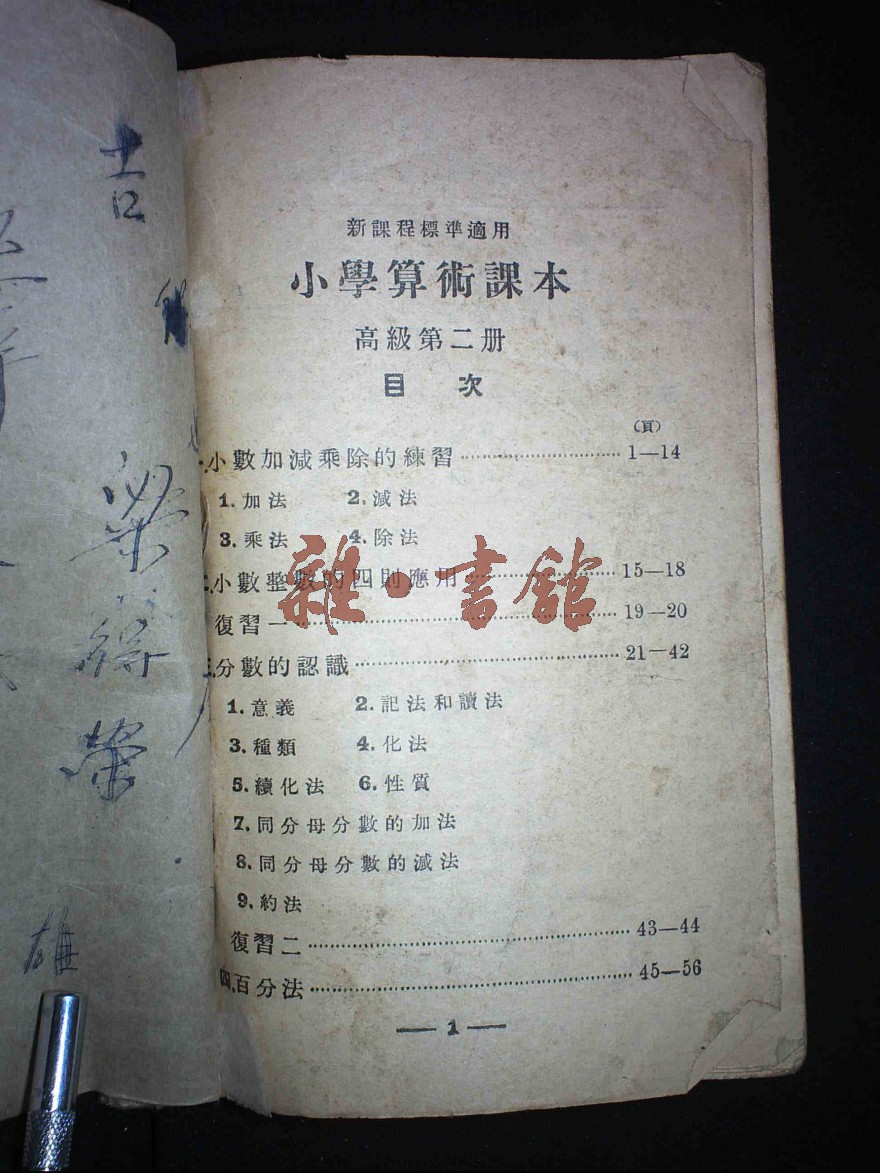 新課程標準適用
小學算術課本
高級第二册
目 次
(頁)
一.小數加減乘除的練習 1—14
1.加法 2.減法
3.乘法 4.除法
二.小數整數的四則應用 15—18
復習一 19—20
三.分數的認識 21—42
1.意義 2.記法和讀法
3.種類 4.化法
5.續化法 6.性質
7.同分母分數的加法
8.同分母分數的減法
9.約法
復習二 43—44
四.百分法 45—56
— 1 —
雜·書館
吉
雄